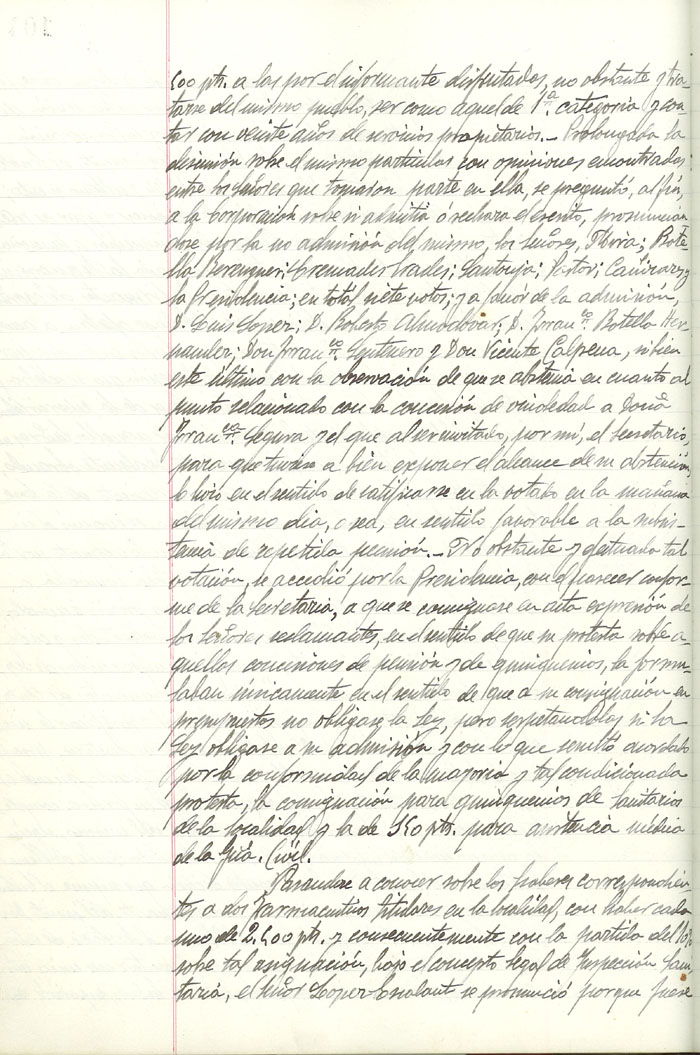 500 pts. a las por el informante disfrutadas, no obstante y tra-
tarse del mismo pueblo, ser como aquel de 1ª. categoria y con-
tar con veinte años de servicios propietarios.- Prolongada la
discusión sobre el mismo particular con opiniones encontradas
entre los señores que tomaron parte en ella, se preguntó, al fin,
a la Corporación sobre si admitia ó rechaza el escrito, pronuncian
dose por la no admisión del mismo, los señores, Maria; Bote-
lla Berenguer; Cremades Prades; Santonja; Pastor; Cañizares y
la Presidencia; en total siete votos; y a favor de la admisión,
D. Luis Lopez; D. Roberto Almodóvar; D. Francº. Botella Her-
nandez; Don Francº. Sentenero y Don Vicente Calpena, si bien
este último con la observación de que se abstenia en cuanto al
punto relacionado con la concesión de viudedad a Doña
Francª. Segura y el que al ser invitado, por mí, el Secretario,
para que tuviese a bien exponer el alcance de su abstención,
lo hizo en el sentido de ratificarse en lo votado en la mañana
del mismo dia, o sea, en sentido favorable a la subsis-
tencia de repetida pensión.- No obstante y efectuada tal
votación, se accedió por la Presidencia, con el parecer confor-
me de la Secretaria, a que se consignase en acta expresión de
los señores reclamantes, en el sentido de que su protesta sobre a-
quellas concesiones de pensión y de quinquenios, la formu-
laban únicamente en el sentido de que a su consignación en
presupuestos no obligase la Ley, pero respetandolas si la
Ley obligase a su admisión y con lo que resultó acordado
por la conformidad de la mayoria y tal condicionada
protesta, la consignación para quinquenios de Sanitarios
de la localidad y la de 350 pts. para asistencia médica
de la Gúa. Civil.
Pasandose a conocer sobre los haberes correspondien
tes a dos Farmaceuticos titulares en la localidad, con haber cada
uno de 2,500 pts. y consecuentemente con la partida del 10%
sobre tal asignación, bajo el concepto legal de Inspección Sani
taria, el señor Lopez Esculant se pronunció porque fuese